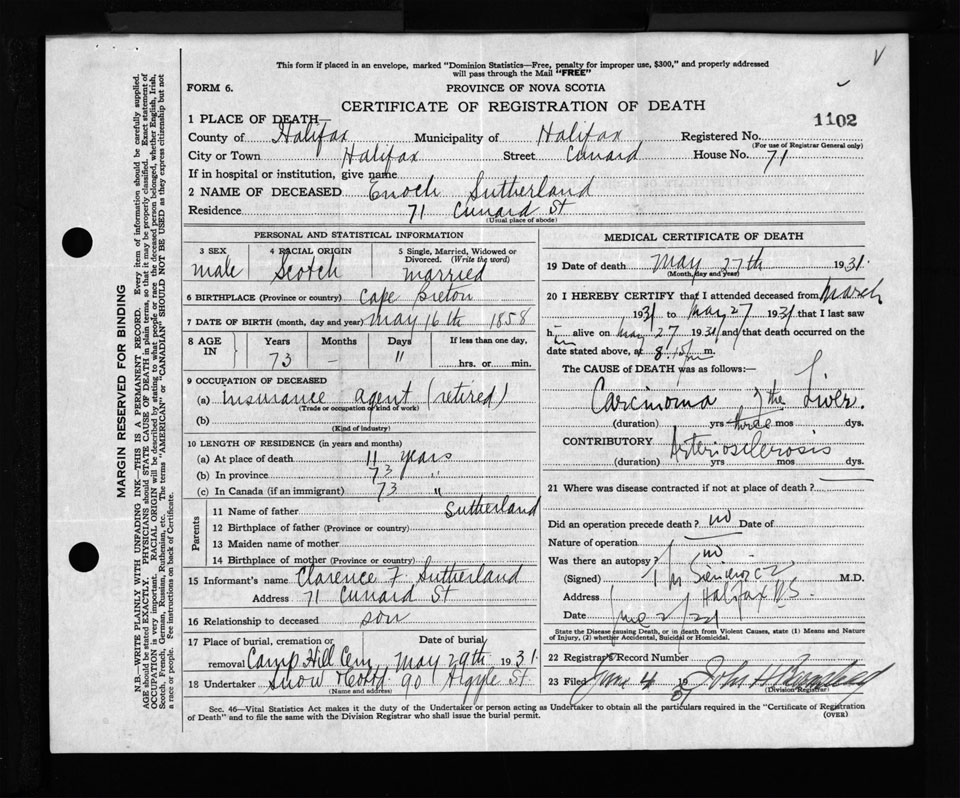 This form if placed in an envelope, marked "Dominion Statistics—Free, penalty for improper use, $300," and properly addressed
will pass through the Mail "FREE"
FORM 6.
PROVINCE OF NOVA SCOTIA
CERTIFICATE OF REGISTRATION OF DEATH
1102
1 PLACE OF DEATH—
County of Halifax Municipality of Halifax Registered No.
(For use of Registrar General only)
City or Town Halifax Street Cunard House No. 71
If in hospital or institution, give name
2 NAME OF DECEASED Enoch Sutherland
Residence 71 Cunard St
(Usual place of abode)
PERSONAL AND STATISTICAL INFORMATION
3 SEX male
4 RACIAL ORIGIN Scotch
5 Single, Married, Widowed or Divorced. (Write the word) married
6 BIRTHPLACE (Province or country) Cape Breton
7 DATE OF BIRTH (month, day and year) May 16th 1858
8 AGE IN
Years Months Days If less than one day,
73 - 11 hrs. or min.
9 OCCUPATION OF DECEASED
(a) Insurance agent (retired)
(Trade or occupation or kind of work)
(b)
(Kind of industry)
10 LENGTH OF RESIDENCE (in years and months)
(a) At place of death 11 years
(b) In province 73 "
(c) In Canada (if an immigrant) 73 "
Parents
11 Name of father Sutherland
12 Birthplace of father (Province or country)
13 Maiden name of mother
14 Birthplace of mother (Province or country)
15 Informant's name Clarence F. Sutherland
Address 71 Cunard St
16 Relationship to deceased son
17 Place of burial, cremation or removal Camp Hill Cem
Date of burial May 29th 1931.
18 Undertaker Snow & Co Ltd 90 Argyle St
(Name and address)
MEDICAL CERTIFICATE OF DEATH
19 Date of death May 27th 1931.
(Month, day and year)
20 I HEREBY CERTIFY that I attended deceased from March
1931 to May 27 1931 that I last saw
him alive on May 27 1931 and that death occurred on the
date stated above, at 8.15 p m.
The CAUSE of DEATH was as follows:—
Carcinoma of the Liver.
(duration) yrs three mos dys.
CONTRIBUTORY Arteriosclerosis
(duration) yrs mos dys.
21 Where was disease contracted if not at place of death?
Did an operation precede death? no Date of
Nature of operation
Was there an autopsy? no
(Signed) M.D.
Address Halifax N.S.
Date June 2/31
State the Disease causing Death, or in death from Violent Causes, state (1) Means and Nature
of Injury, (2) whether Accidental, Suicidal or Homicidal.
22 Registrar's Record Number
23 Filed June 4 1931 John H
(Division Registrar)
Sec. 46—Vital Statistics Act makes it the duty of the Undertaker or person acting as Undertaker to obtain all the particulars required in the "Certificate of Registration
of Death" and to file the same with the Division Registrar who shall issue the burial permit.
(OVER)
MARGIN RESERVED FOR BINDING
N.B.—WRITE PLAINLY WITH UNFADING INK—THIS IS A PERMANENT RECORD. Every item of information should be carefully supplied.
AGE should be stated EXACTLY. PHYSICIANS should STATE CAUSE OF DEATH in plain terms, so that it may be properly classified. Exact statement of
OCCUPATION is very important. RACIAL ORIGIN will be described by stating to what people or race the deceased person belonged, whether English, Irish,
Scotch, French, German, Russian, Ruthenian, etc. The terms "AMERICAN" or "CANADIAN" SHOULD NOT BE USED as they express citizenship but not
a race or people. Fee instructions on back of Certificate.